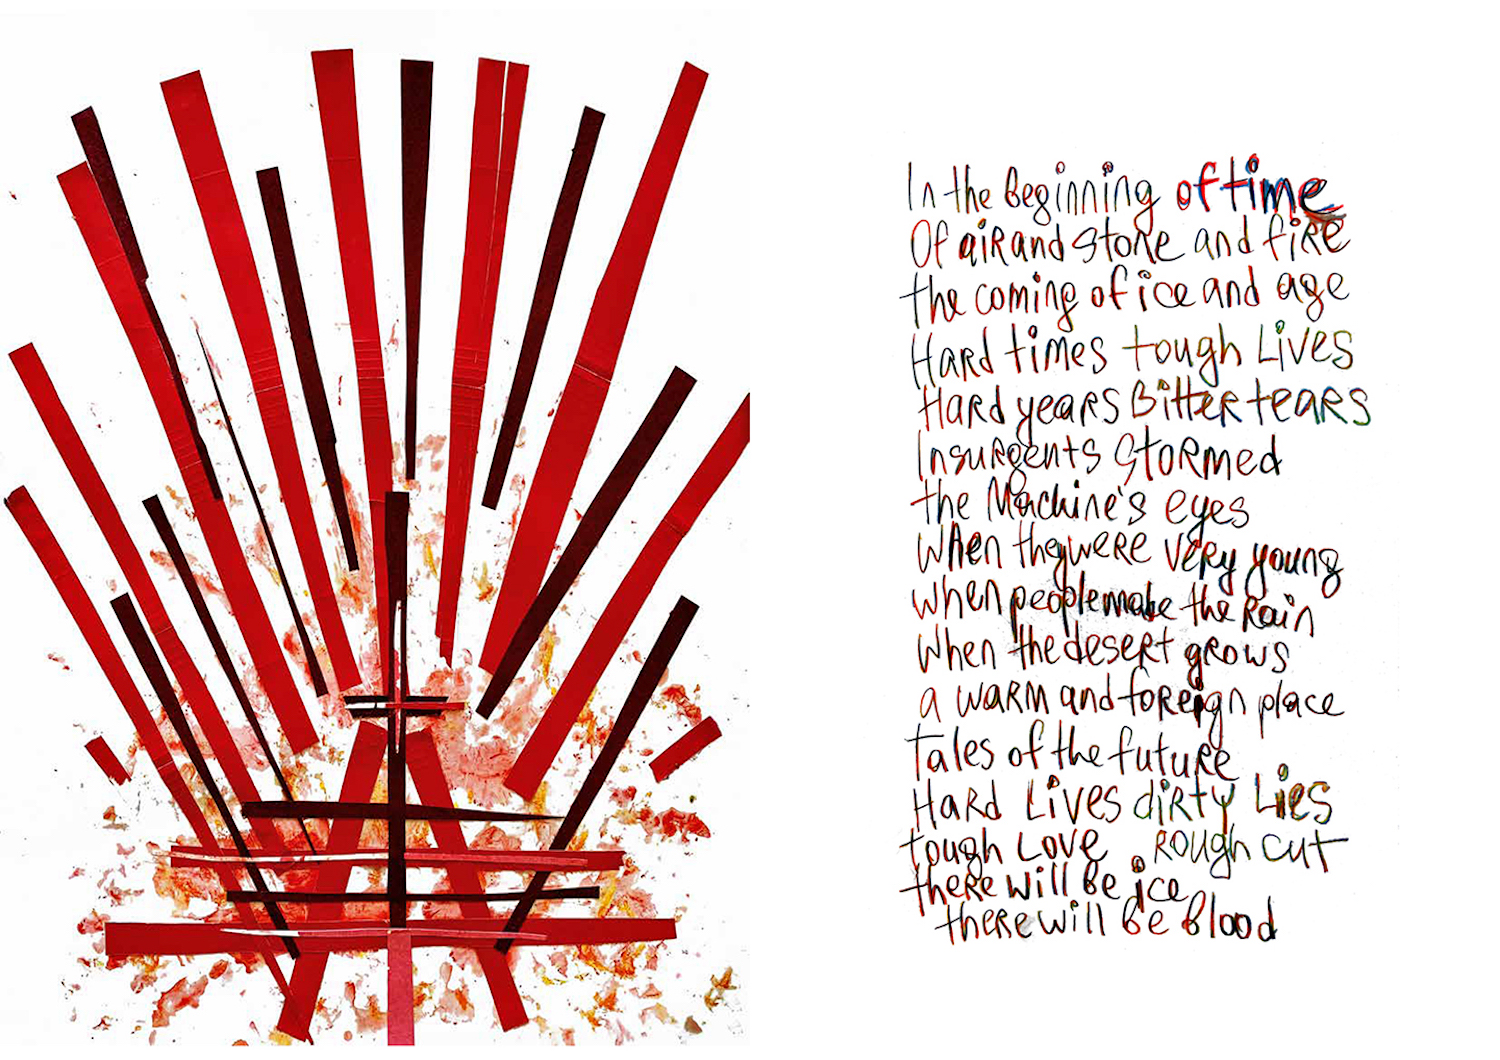 In the Beginning of time
Of air and stone and fire
the coming of ice and age
Hard times tough Lives
Hard years Bitter tears
Insurgents Stormed
the Machine's eyes
When they were very young
when people make the Rain
When the desert grows
a warm and foreign place
tales of the future
Hard Lives dirty Lies
tough Love Rough cut
there will be ice
there will be Blood